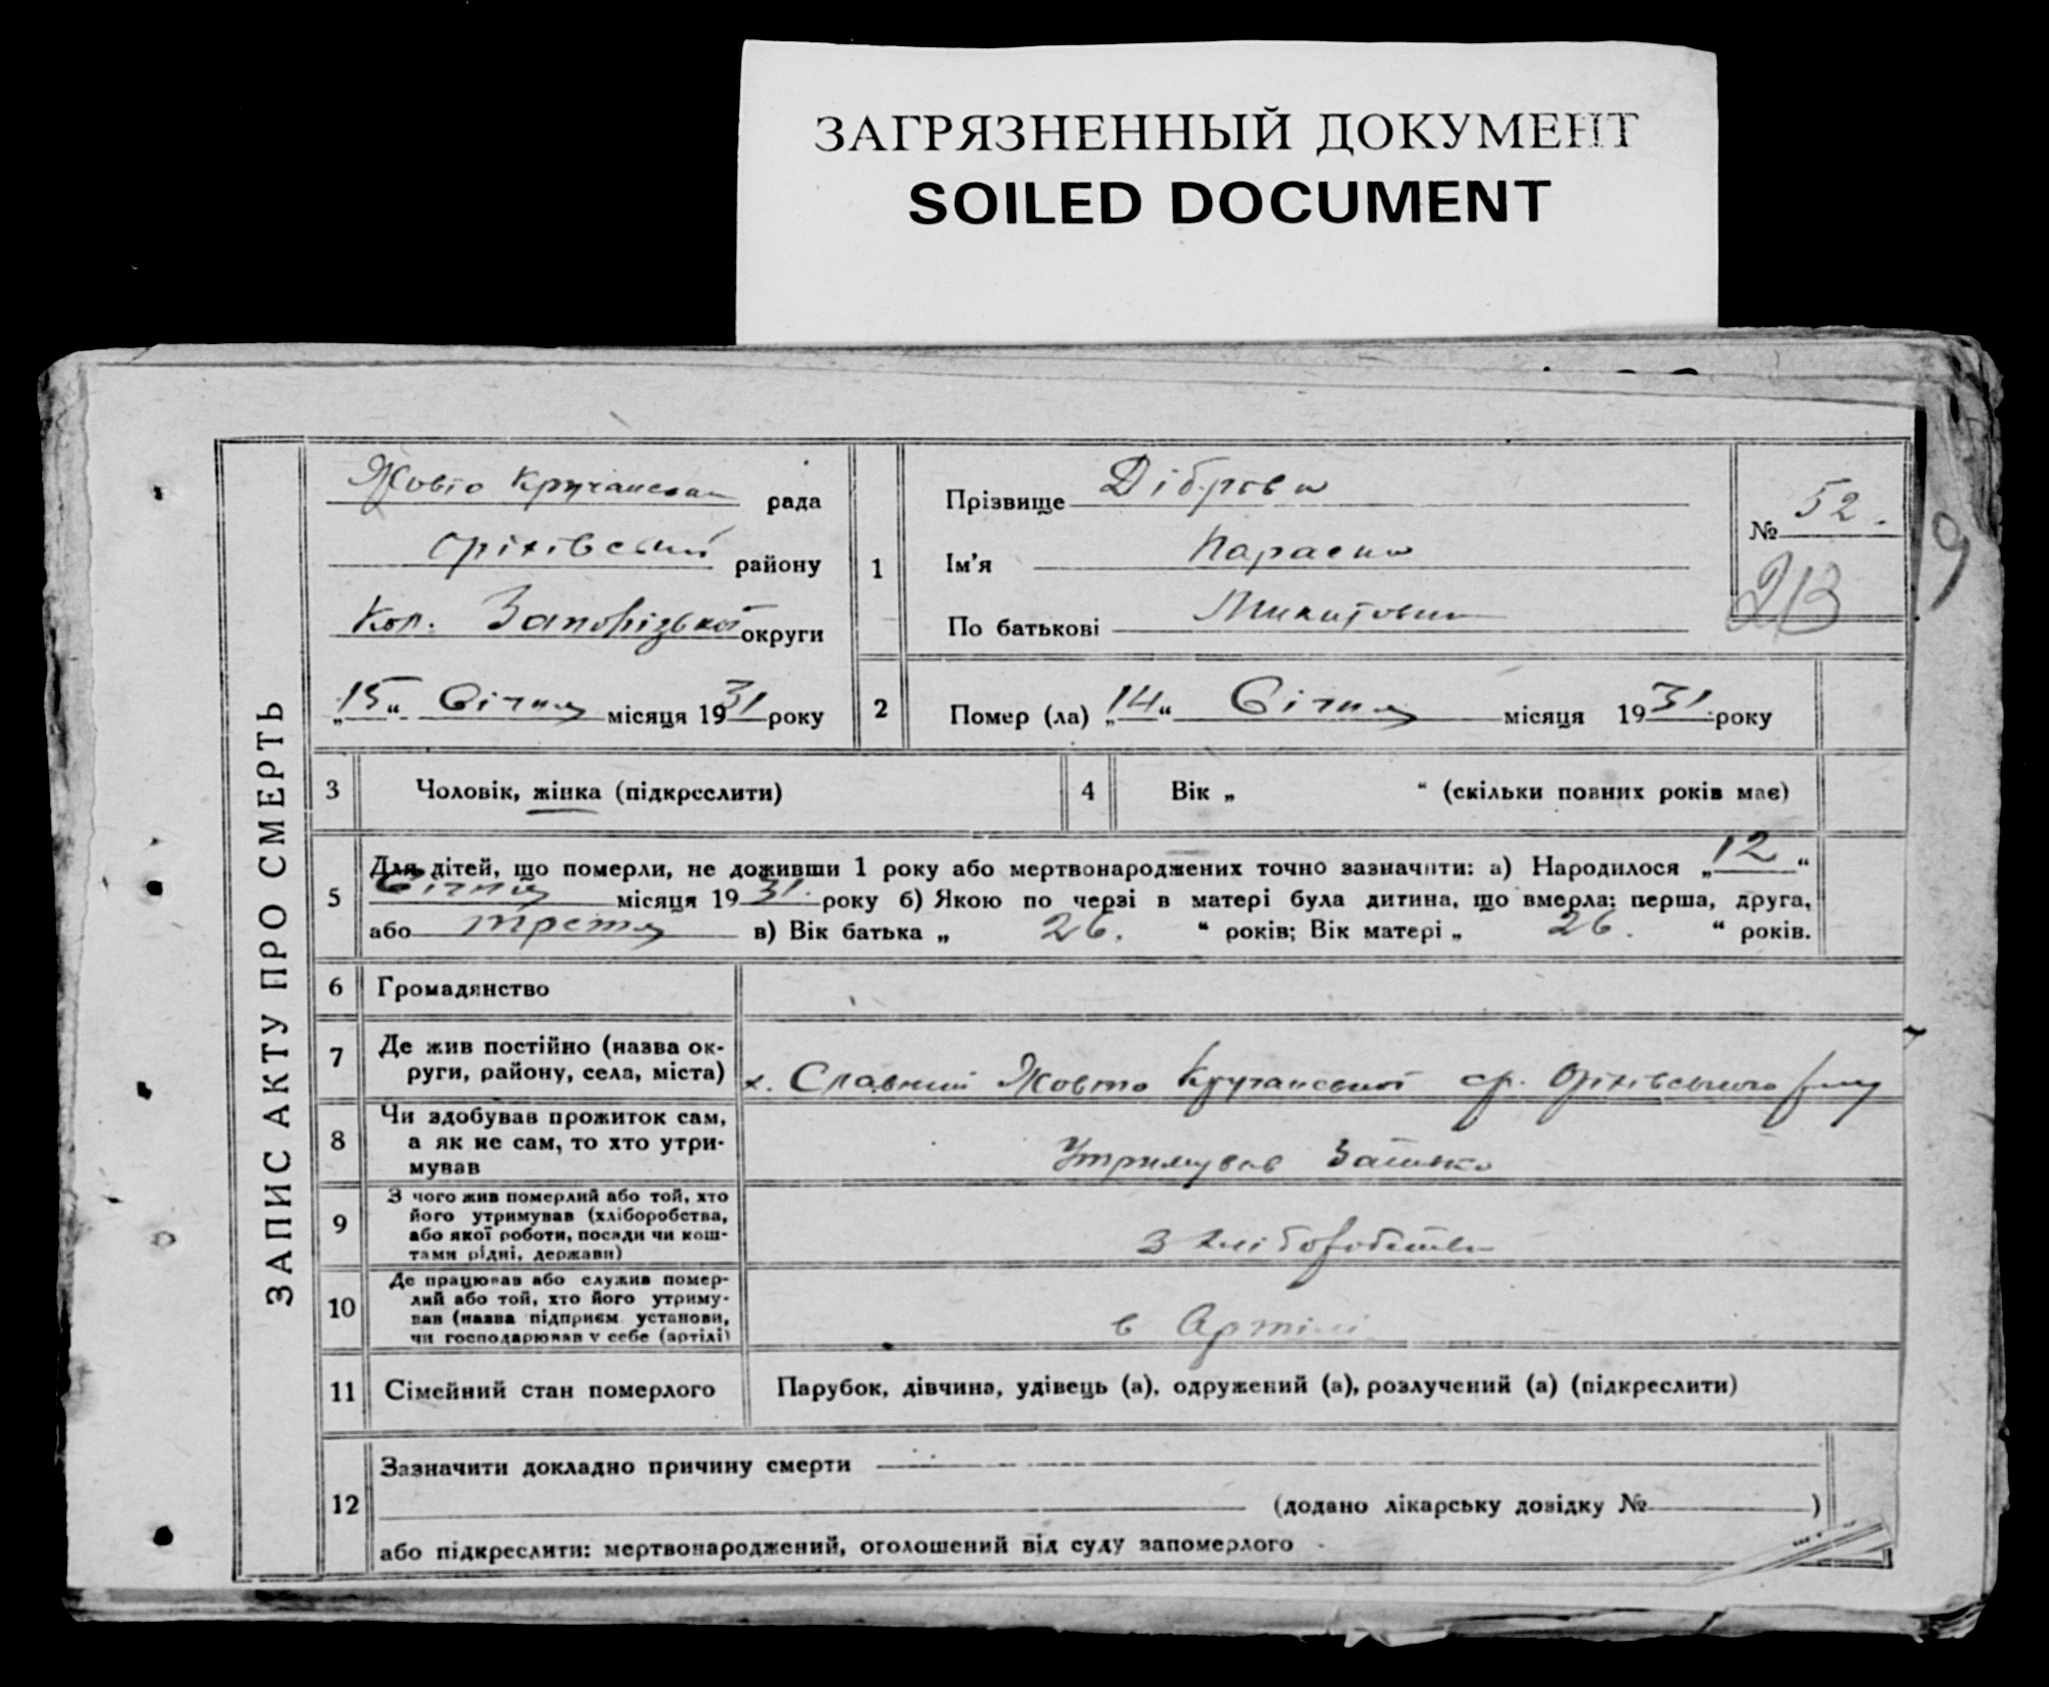 ЗАГРЯЗНЕННЫЙ ДОКУМЕНТ
SOILED DOCUMENT
ЗАПИС АКТУ ПРО СМЕРТЬ
Жовто Кручанська рада
Оріхівський району
Кол. Запорізької округи
„15“ Січня місяця 1931 року
1
Прізвище Діброва
Ім'я Параска
По батькові Микитовна
№ 52.
9
2
Помер (ла) „14“ Січня місяця 1931 року
3 Чоловік, жінка (підкреслити)
4 Вік „ “ (скільки повних років має)
5 Для дітей, що померли, не доживши 1 року або мертвонароджених точно зазначити: а) Народилося „12“
Січня місяця 1931. року б) Якою по черзі в матері була дитина, що вмерла: перша, друга,
або третя в) Вік батька „ 26. “ років; Вік матері „ 26. “ років.
6 Громадянство
7 Де жив постійно (назва ок-
руги, району, села, міста)
х. Славний Жовто Кручанської ср. Оріхівського
8 Чи здобував прожиток сам,
а як не сам, то хто утри-
мував
Утримував батько
9 З чого жив померлий або той, хто
його утримував (хліборобства,
або якої роботи, посади чи кош-
тами рідні, держави)
З хліборобства
10 Де працював або служив помер-
лий або той, хто його утриму-
вав (назва підприєм. установи,
чи господарював у себе (артілі)
в Артілі
11 Сімейний стан померлого
Парубок, дівчина, удівець (а), одружений (а), розлучений (а) (підкреслити)
12 Зазначити докладно причину смерти
(додано лікарську довідку № )
або підкреслити: мертвонароджений, оголошений від суду запомерлого